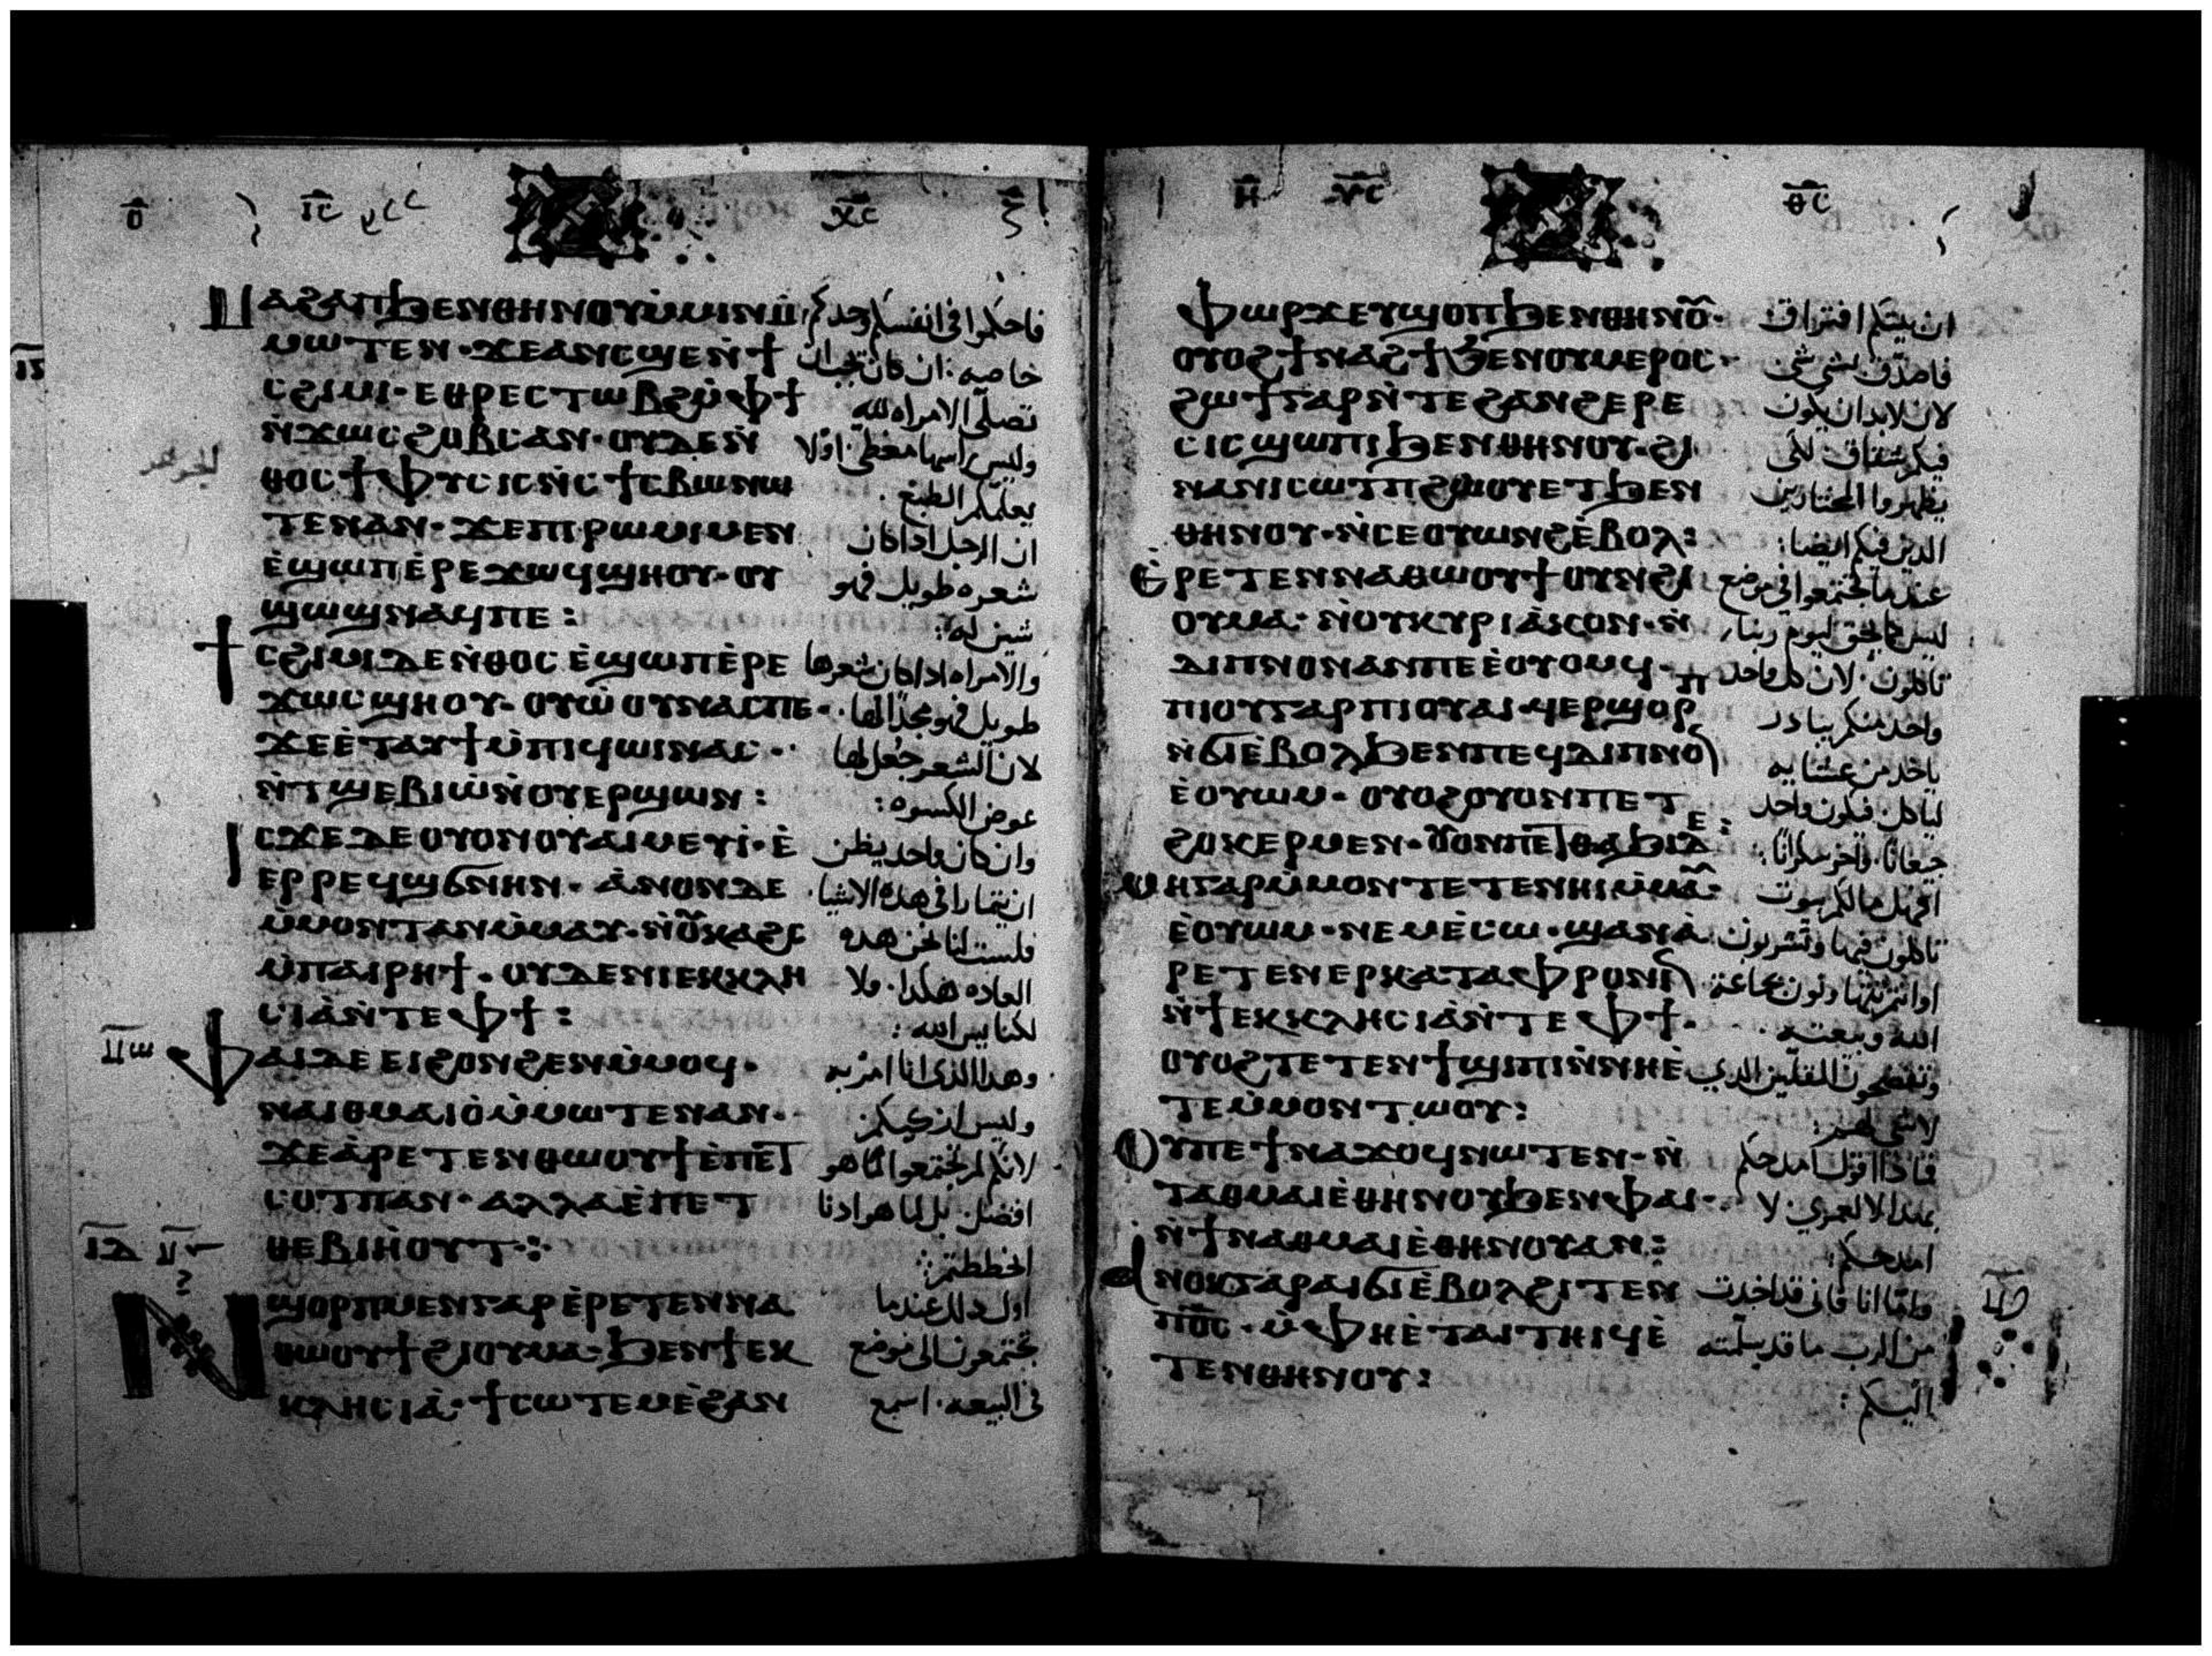 ⲓ̅ⲥ̅
ⲭ̅ⲥ̅
ⲙⲁϩⲁⲡϧⲉⲛⲑⲏⲛⲟⲩⲙ̀ⲙⲓⲛⲙ̀
ⲙⲱⲧⲉⲛ· ϫⲉⲁⲛⲥϣⲉⲛ̀ϯ
ⲥϩⲓⲙⲓ· ⲉⲑⲣⲉⲥⲧⲱⲃϩⲙ̀ⲫϯ
ⲛ̀ϫⲱⲥϩⲟⲃⲥⲁⲛ· ⲟⲩⲇⲉⲛ̀
ⲑⲟⲥϯⲫⲩⲥⲓⲥⲛ̀ⲥϯⲥⲃⲱⲛⲱ
ⲧⲉⲛⲁⲛ· ϫⲉⲡⲓⲣⲱⲙⲓⲙⲉⲛ
ⲉ̀ϣⲱⲡⲉ̀ⲣⲉϫⲱϥϣⲏⲟⲩ· ⲟⲩ
ϣⲱϣⲛⲁϥⲡⲉ:
ϯⲥϩⲓⲙⲓⲇⲉⲛ̀ⲑⲟⲥ ⲉ̀ϣⲱⲡⲉ̀ⲣⲉ
ϫⲱⲥϣⲏⲟⲩ· ⲟⲩⲱ̀ⲟⲩⲛⲁⲥⲡⲉ·
ϫⲉⲉ̀ⲧⲁⲩϯⲙ̀ⲡⲓϥⲱⲓⲛⲁⲥ·
ⲛ̀ⲧϣⲉⲃⲓⲱ̀ⲛ̀ⲟⲩⲉⲣϣⲱⲛ:
ⲓⲥϫⲉⲇⲉⲟⲩⲟⲛⲟⲩⲁⲓⲙⲉⲩⲓ̀· ⲉ̀
ⲉⲣⲣⲉϥϣϭⲛⲏⲛ· ⲁ̀ⲛⲟⲛⲇⲉ
ⲙ̀ⲙⲟⲛⲧⲁⲛⲙ̀ⲙⲁⲩ·
ⲙ̀ⲡⲁⲓⲣⲏϯ· ⲟⲩⲇⲉⲛⲓⲉⲕⲕⲗⲏ
ⲥⲓⲁ̀ⲛ̀ⲧⲉⲫϯ:
ⲫⲁⲓⲇⲉⲉⲓϩⲟⲛϩⲉⲛⲙ̀ⲙⲟϥ·
ⲛⲁⲓⲑⲙⲁⲓⲟ̀ⲙ̀ⲙⲱⲧⲉⲛⲁⲛ·
ϫⲉⲁ̀ⲣⲉⲧⲉⲛⲑⲱⲟⲩϯⲉ̀ⲡⲉⲧ
ⲥⲟⲧⲡⲁⲛ· ⲁⲗⲗⲁⲉ̀ⲡⲉⲧ
ⲑⲉⲃⲓⲏ̀ⲟⲩⲧ:
ⲛϣⲟⲣⲡⲙⲉⲛⲅⲁⲣⲉ̀ⲣⲉⲧⲉⲛⲛⲁ
ⲑⲱⲟⲩϯϩⲓⲟⲩⲙⲁ· ϧⲉⲛϯⲉⲕ
ⲕⲗⲏⲥⲓⲁ̀· ϯⲥⲱⲧⲉⲙⲉ̀ϩⲁⲛ
فاحكموا فى انفسكم وحدكم
خاصه: ان كان تجب ان
تصلى الامراه لله
وليس راسها مغطى: اولا
يعلمكم الطبع.
ان الرجل اذا كان
شعره طويل فهو
شين له:
والامراه اذا كان شعرها
طويل فهو مجدًا لها.
لان الشعر جُعل لها
عوض الكسوه:
وان كان واحد يظن
ان يمارا فى هذه الاشيا
فليست لنا نحن هذه
العاده هكذا. ولا
لكنايس الله:
وهذا الذى انا امر به
وليس ازكيكم
لانكم لم تجتمعوا لما هو
افضل. بل لما هو ادنا
اول ذلك عندما
تجتمعون الى موضع
فى البيعه. اسمع
ⲩ̅ⲥ̅
ⲑ̅ⲥ̅
ⲫⲱⲣϫⲉⲩϣⲟⲡϧⲉⲛⲑⲏⲛⲟⲩ·
ⲟⲩⲟϩϯⲛⲁϩϯϧⲉⲛⲟⲩⲙⲉⲣⲟⲥ·
ϩⲱϯⲅⲁⲣⲛ̀ⲧⲉϩⲁⲛϩⲉⲣⲉ
ⲥⲓⲥϣⲱⲡⲓϧⲉⲛⲑⲏⲛⲟⲩ· ϩⲓ
ⲛⲁⲛⲓⲥⲱⲧⲡϩⲱⲟⲩⲉⲧϧⲉⲛ
ⲑⲏⲛⲟⲩ· ⲛ̀ⲥⲉⲟⲩⲱⲛϩⲉ̀ⲃⲟⲗ:
ⲉ̀ⲣⲉⲧⲉⲛⲛⲁⲑⲱⲟⲩϯⲟⲩⲛϩⲓ
ⲟⲩⲙⲁ· ⲛ̀ⲟⲩⲕⲩⲣⲓⲁ̀ⲕⲟⲛ· ⲛ̀
ⲇⲓⲡⲛⲟⲛⲁⲛⲡⲉⲉ̀ⲟⲩⲟⲙϥ·
ⲡⲓⲟⲩⲅⲁⲣⲡⲓⲟⲩⲁⲓ· ϥⲉⲣϣⲟⲣⲡ
ⲛ̀ϭⲓⲉ̀ⲃⲟⲗϧⲉⲛⲡⲉϥⲇⲓⲡⲛⲟⲛ
ⲉ̀ⲟⲩⲱⲙ· ⲟⲩⲟϩⲟⲩⲟⲛⲡⲉⲧ
ϩⲟⲕⲉⲣⲙⲉⲛ· ⲟⲩⲟⲛⲡⲉⲧⲑⲁϧⲓⲇⲉ:
ⲙⲏⲅⲁⲣⲙ̀ⲙⲟⲛⲧⲉⲧⲉⲛⲏⲓⲙ̀ⲙⲁⲩ·
ⲉ̀ⲟⲩⲱⲙ· ⲛⲉⲙⲉ̀ⲥⲱ· ϣⲁⲛⲁ̀
ⲣⲉⲧⲉⲛⲉⲣⲕⲁⲧⲁⲫⲣⲟⲛⲓⲛ
ⲛ̀ϯⲉⲕⲕⲗⲏⲥⲓⲁ̀ⲛ̀ⲧⲉⲫϯ·
ⲟⲩⲟϩⲧⲉⲧⲉⲛϯϣⲓⲡⲓⲛ̀ⲛⲏⲉ̀
ⲧⲉⲙ̀ⲙⲟⲛⲧⲱⲟⲩ:
ⲟⲩⲡⲉϯⲛⲁϫⲟϥⲛⲱⲧⲉⲛ· ⲛ̀
ⲧⲁⲑⲙⲁⲓⲉ̀ⲑⲏⲛⲟⲩϧⲉⲛⲫⲁⲓ·
ⲛ̀ϯⲛⲁⲑⲙⲁⲓⲉ̀ⲑⲏⲛⲟⲩⲁⲛ:
ⲁⲛⲟⲕⲅⲁⲣⲁⲓϭⲓⲉ̀ⲃⲟⲗϩⲓⲧⲉⲛ
ⲡ⳪· ⲙ̀ⲫⲏⲉ̀ⲧⲁⲓⲧⲏⲓϥⲉ̀
ⲧⲉⲛⲑⲏⲛⲟⲩ:
ان بينكم افتراق
فاصدق لشى شى
لان لابد ان يكون
فيكم شقاق. لكى
يظهروا المختارين
الذين فيكم ايضا:
عندما تجتمعوا فى موضع
ليس كما يحق ليوم ربنا
تاكلون. لان كل واحد
واحد منكم يبادر
ياخذ من عشايه
لياكل. فيكون واحد
جيعانًا. واخر سكرانًا:
افهل ما لكم بيوت
تاكلون فيها وتشربون
الله وبيعته.
وتفضحون المقلين الذى
لا شى لهم:
فماذا اقول امدحكم
بهذا لا لعمرى. لا
امدحكم:
واما انا فانى قد اخذت
من الرب ما قد سلمته
اليكم: